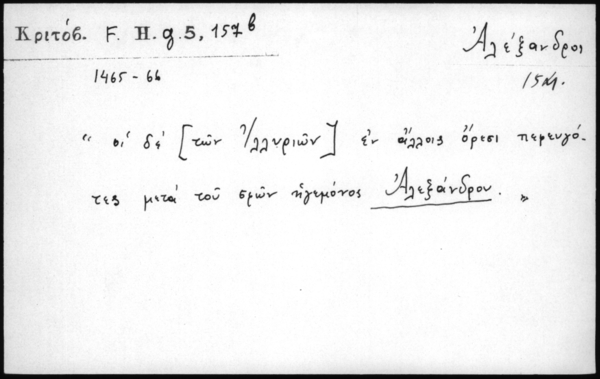 Κριτόβ. F. H. g. 5, 157b
Ἀλέξανδρος
1465-66
15M.
" οἱ δέ [τῶν Ἰλλυριῶν] ἐν ἄλλοις ὄρεσι πεφευγό-
τες μετά τοῦ σφῶν ἡγεμόνος Ἀλεξάνδρου. "